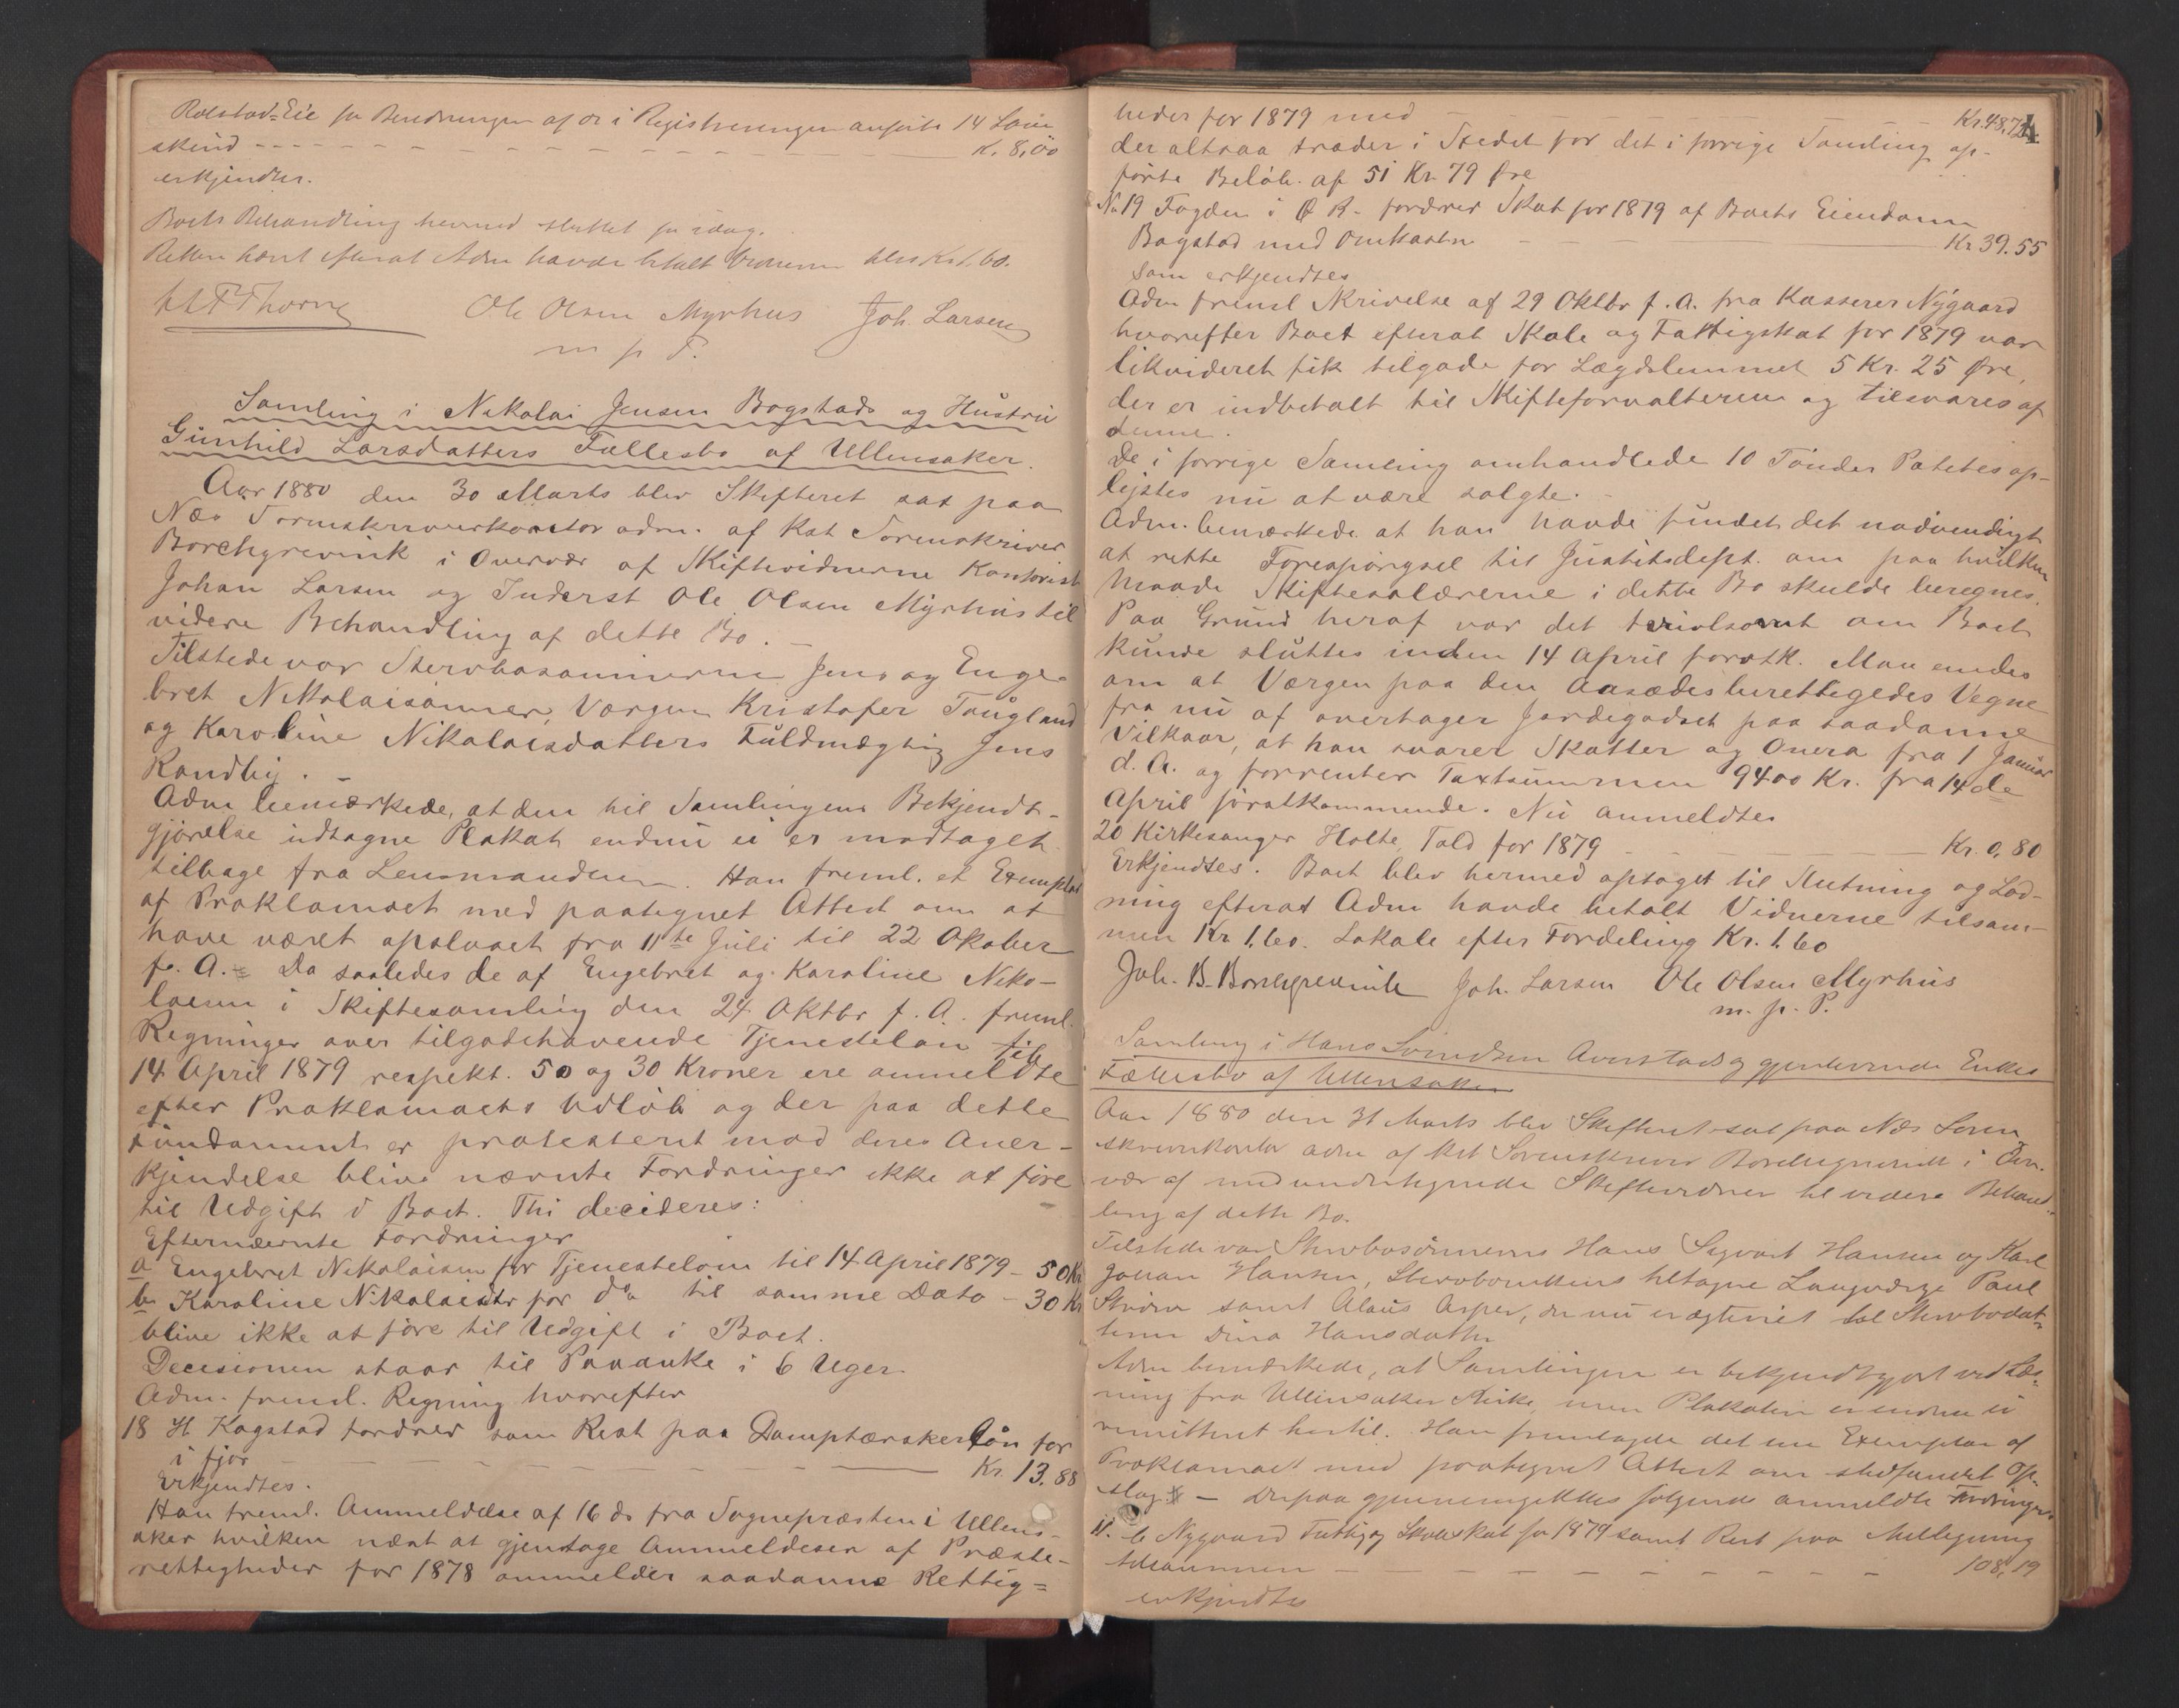 Rolstad-Eie for Beredningen af de i Registreringen anførte 14 Lam
skind - - - Kr. 8,00
erkjendtes.
Boets Behandling hermed sluttet for idag.
Retten hævet efterat Adm havde betalt Vidnerne Kr. 1.60.
Thorne Ole Olsen Myrhus Joh. Larsen
m p P.
Samling i Nikolai Jensen Bogstads og Hustru
Gunhild Larsdatters Fællesbo af Ullensaker.
Aar 1880 den 30 Marts blev Skifteret sat paa
Næs Sorenskriverkontor adm. af Kst Sorenskriver
Borchgrevink i Overvær af Skiftevidnerne Kontorist
Johan Larsen og Inderst Ole Olsen Myrhus til
videre Behandling af dette Bo. -
Tilstede var Stervbosønnerne Jens og Enge-
bret Nikolaisønner, Værgen Kristofer Taugland
og Karoline Nikolaisdatters Fuldmægtig Jens
Randby. -
Adm bemærkede, at den til Samlingens Bekjendt-
gjørelse udtagne Plakat endnu ei er modtaget
tilbage fra Lensmanden. Han freml. et Exemplar
af Proklamaet med paategnet Attest om at
have været opslaaet fra 11te Juli til 22 Oktober
f. A. - Da saaledes de af Engebret og Karoline Niko-
laisen i Skiftesamling den 24 Oktbr f. A. freml.
Regninger over tilgodehavende Tjenesteløn til
14 April 1879 respekt. 50 og 30 Kroner ere anmeldte
efter Proklamaets Udløb og der paa dette
Fundament er protesteret mod deres Aner-
kjendelse blive nævnte Fordringer ikke at føre
til Udgift i Boet. Thi decideres:
Efternævnte Fordringer
a Engebret Nikolaisen for Tjenesteløn til 14 April 1879 - 50 Kr
b Karoline Nikolaisdtr for do til samme Dato - 30 Kr
blive ikke at føre til Udgift i Boet.
Decisionen staar til Paaanke i 6 Uger.
Adm. freml. Regning hvorefter
18 H Kogstad fordrer som Rest paa Damptærskerløn for
i fjor - - - Kr. 13.88
Erkjendtes.
Han freml. Anmeldelse af 16 ds fra Sognepræsten i Ullens-
aker hvilken næst at gjentage Anmeldelsen af Præste-
rettigheder for 1878 anmelder saadanne Rettig-
heder for 1879 med - - - Kr. 48,72
4
der altsaa træder i Stedet for det i forrige Samling op-
førte Beløb af 51 Kr. 79 Øre
No 19 Fogden i Ø R. fordrer Skat for 1879 af Boets Eiendom
Bogstad med Omkostn - - - Kr 39.55
som erkjendtes
Adm freml Skrivelse af 29 Oktbr f. A. fra Kasserer Nygaard
hvorefter Boet efterat Skole og Fattigskat for 1879 var
likvideret fik tilgode for Lægdslemmet 5 Kr. 25 Øre,
der er indbetalt til Skifteforvalteren og tilsvares af
denne.
De i forrige Samling omhandlede 10 Tønder Potetes op-
lystes nu at være solgte. -
Adm. bemærkede at han havde fundet det nødvendigt
at rette Forespørgsel til Justitsdept. om paa hvilken
Maade Skiftesalærerne i dette Bo skulde beregnes.
Paa Grund heraf var det tvivlsomt om Boet
kunde sluttes inden 14 April førstk. Man enedes
om at Værgen paa den Aasædesberettigedes Vegne
fra nu af overtager Jordegodset paa saadanne
Vilkaar, at han svarer Skatter og Onera fra 1 Januar
d. A. og forrenter Taxtsummen 9400 Kr. fra 14de
April førstkommende. Nu anmeldtes
20 Kirkesanger Holte, Told for 1879 - - - Kr. 0,80
Erkjendtes. Boet blev hermed optaget til Slutning og Lod-
ning efterat Adm havde betalt Vidnerne tilsam-
men Kr 1.60. Lokale efter Fordeling Kr. 1.60
Joh. B. Borchgrevink Joh. Larsen Ole Olsen Myrhus
m. p. P.
Samling i Hans Svendsen Averstads og gjenlevende Enkes
Fællesbo af Ullensaker
Aar 1880 den 31 Marts blev Skifteret sat paa Næs Soren
skriverkontor adm af kst Sorenskriver Borchgrevink i Over-
vær af nedundertegnede Skiftevidner til videre Behand-
ling af dette Bo.
Tilstede var Stervbosønnerne Hans Sigvart Hansen og Karl
Johan Hansen, Stervboenkens tiltagne Laugværge Paul
Strøm samt Alaus Asper, der nu er ægteviet til Stervbodat-
teren Dina Hansdatter
Adm bemærkede, at Samlingen er bekjendtgjort ved Læs-
ning fra Ullensaker Kirke, men Plakaten er endnu ei
remitteret hertil. Han fremlagde det ene Exemplar af
Proklamaet med paategnet Attest om stedfundet Op-
slag. - Derpaa gjennemgikkes følgende anmeldte Fordringer
11. Nygaard Fattig og Skoleskat for 1879 samt Rest paa Mellegning
- - - 108,19
erkjendtes